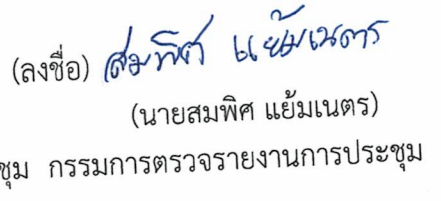 (ลงชื่อ) สมพิศ แย้มเนตร
(นายสมพิศ แย้มเนตร)
ชุม กรรมการตรวจรายงานการประชุม